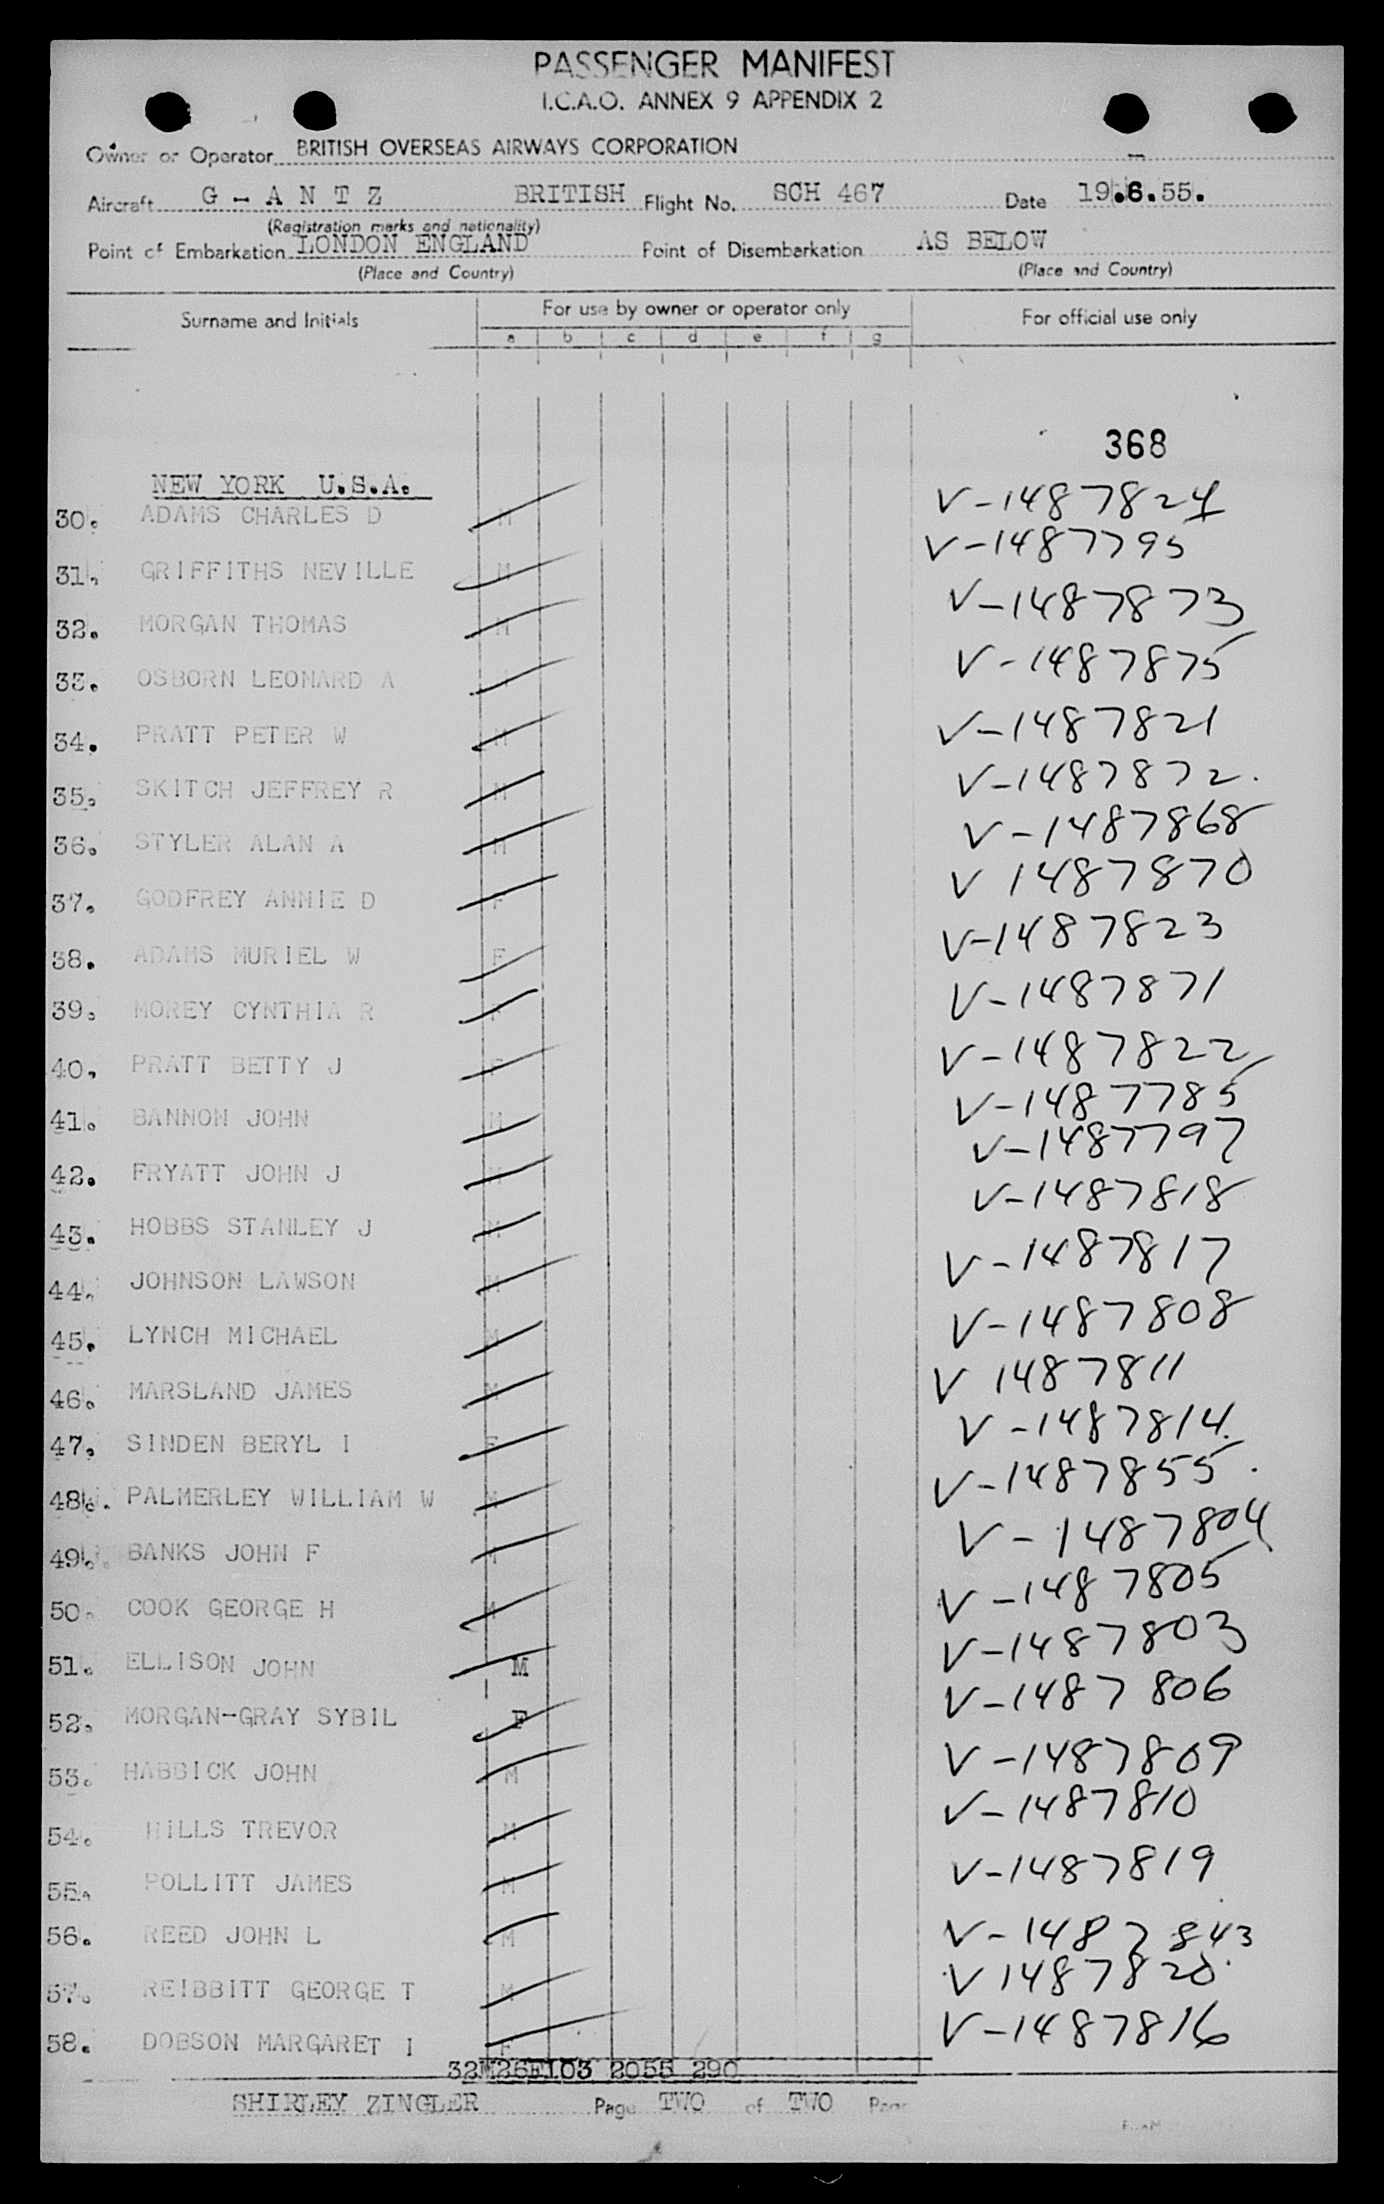 PASSENGER MANIFEST
I.C.A.O. ANNEX 9 APPENDIX 2
Owner or Operator BRITISH OVERSEAS AIRWAYS CORPORATION
Aircraft G-ANTZ BRITISH Flight No. SCH 467 Date 19.6.55.
(Registration marks and nationality)
Point of Embarkation LONDON ENGLAND Point of Disembarkation AS BELOW
(Place and Country) (Place and Country)
Surname and Initials For use by owner or operator only For official use only
a b c d e f g
368
NEW YORK U.S.A.
30. ADAMS CHARLES D M V-1487824
31. GRIFFITHS NEVILLE M V-1487795
32. MORGAN THOMAS M V-1487873
33. OSBORN LEONARD A V-1487875
34. PRATT PETER W M V-1487821
35. SKITCH JEFFREY R M V-1487872.
36. STYLER ALAN A M V-1487868
37. GODFREY ANNIE D F V 1487870
38. ADAMS MURIEL W F V-1487823
39. MOREY CYNTHIA R F V-1487871
40. PRATT BETTY J F V-1487822
41. BANNON JOHN M V-1487785
42. FRYATT JOHN J M V-1487797
43. HOBBS STANLEY J M V-1487818
44. JOHNSON LAWSON M V-1487817
45. LYNCH MICHAEL M V-1487808
46. MARSLAND JAMES M V 1487811
47. SINDEN BERYL I F V-1487814.
48. PALMERLEY WILLIAM W M V-1487855.
49. BANKS JOHN F M V-1487804
50. COOK GEORGE H M V-1487805
51. ELLISON JOHN M V-1487803
52. MORGAN-GRAY SYBIL F V-1487806
53. HABBICK JOHN M V-1487809
54. HILLS TREVOR M V-1487810
55. POLLITT JAMES M V-1487819
56. REED JOHN L M V-1487843
57. REIBBITT GEORGE T M V 1487820
58. DOBSON MARGARET I F V-1487816
32M26F103 2055 290
SHIRLEY ZINGLER Page TWO of TWO Page